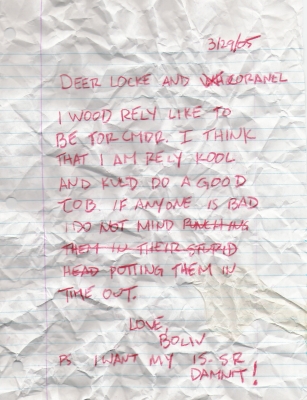 3/29/05
DEER LOCKE AND ORANEL
I WOOD RELY LIKE TO
BE TOR CMDR. I THINK
THAT I AM RELY KOOL
AND KULD DO A GOOD
JOB. IF ANYONE IS BAD
I DO NOT MIND PUNCHING
THEM IN THEIR STUPID
HEAD POTTING THEM IN
TIME OUT.
LOVE,
BOLIV
PS. I WANT MY IS-SR
DAMNIT!